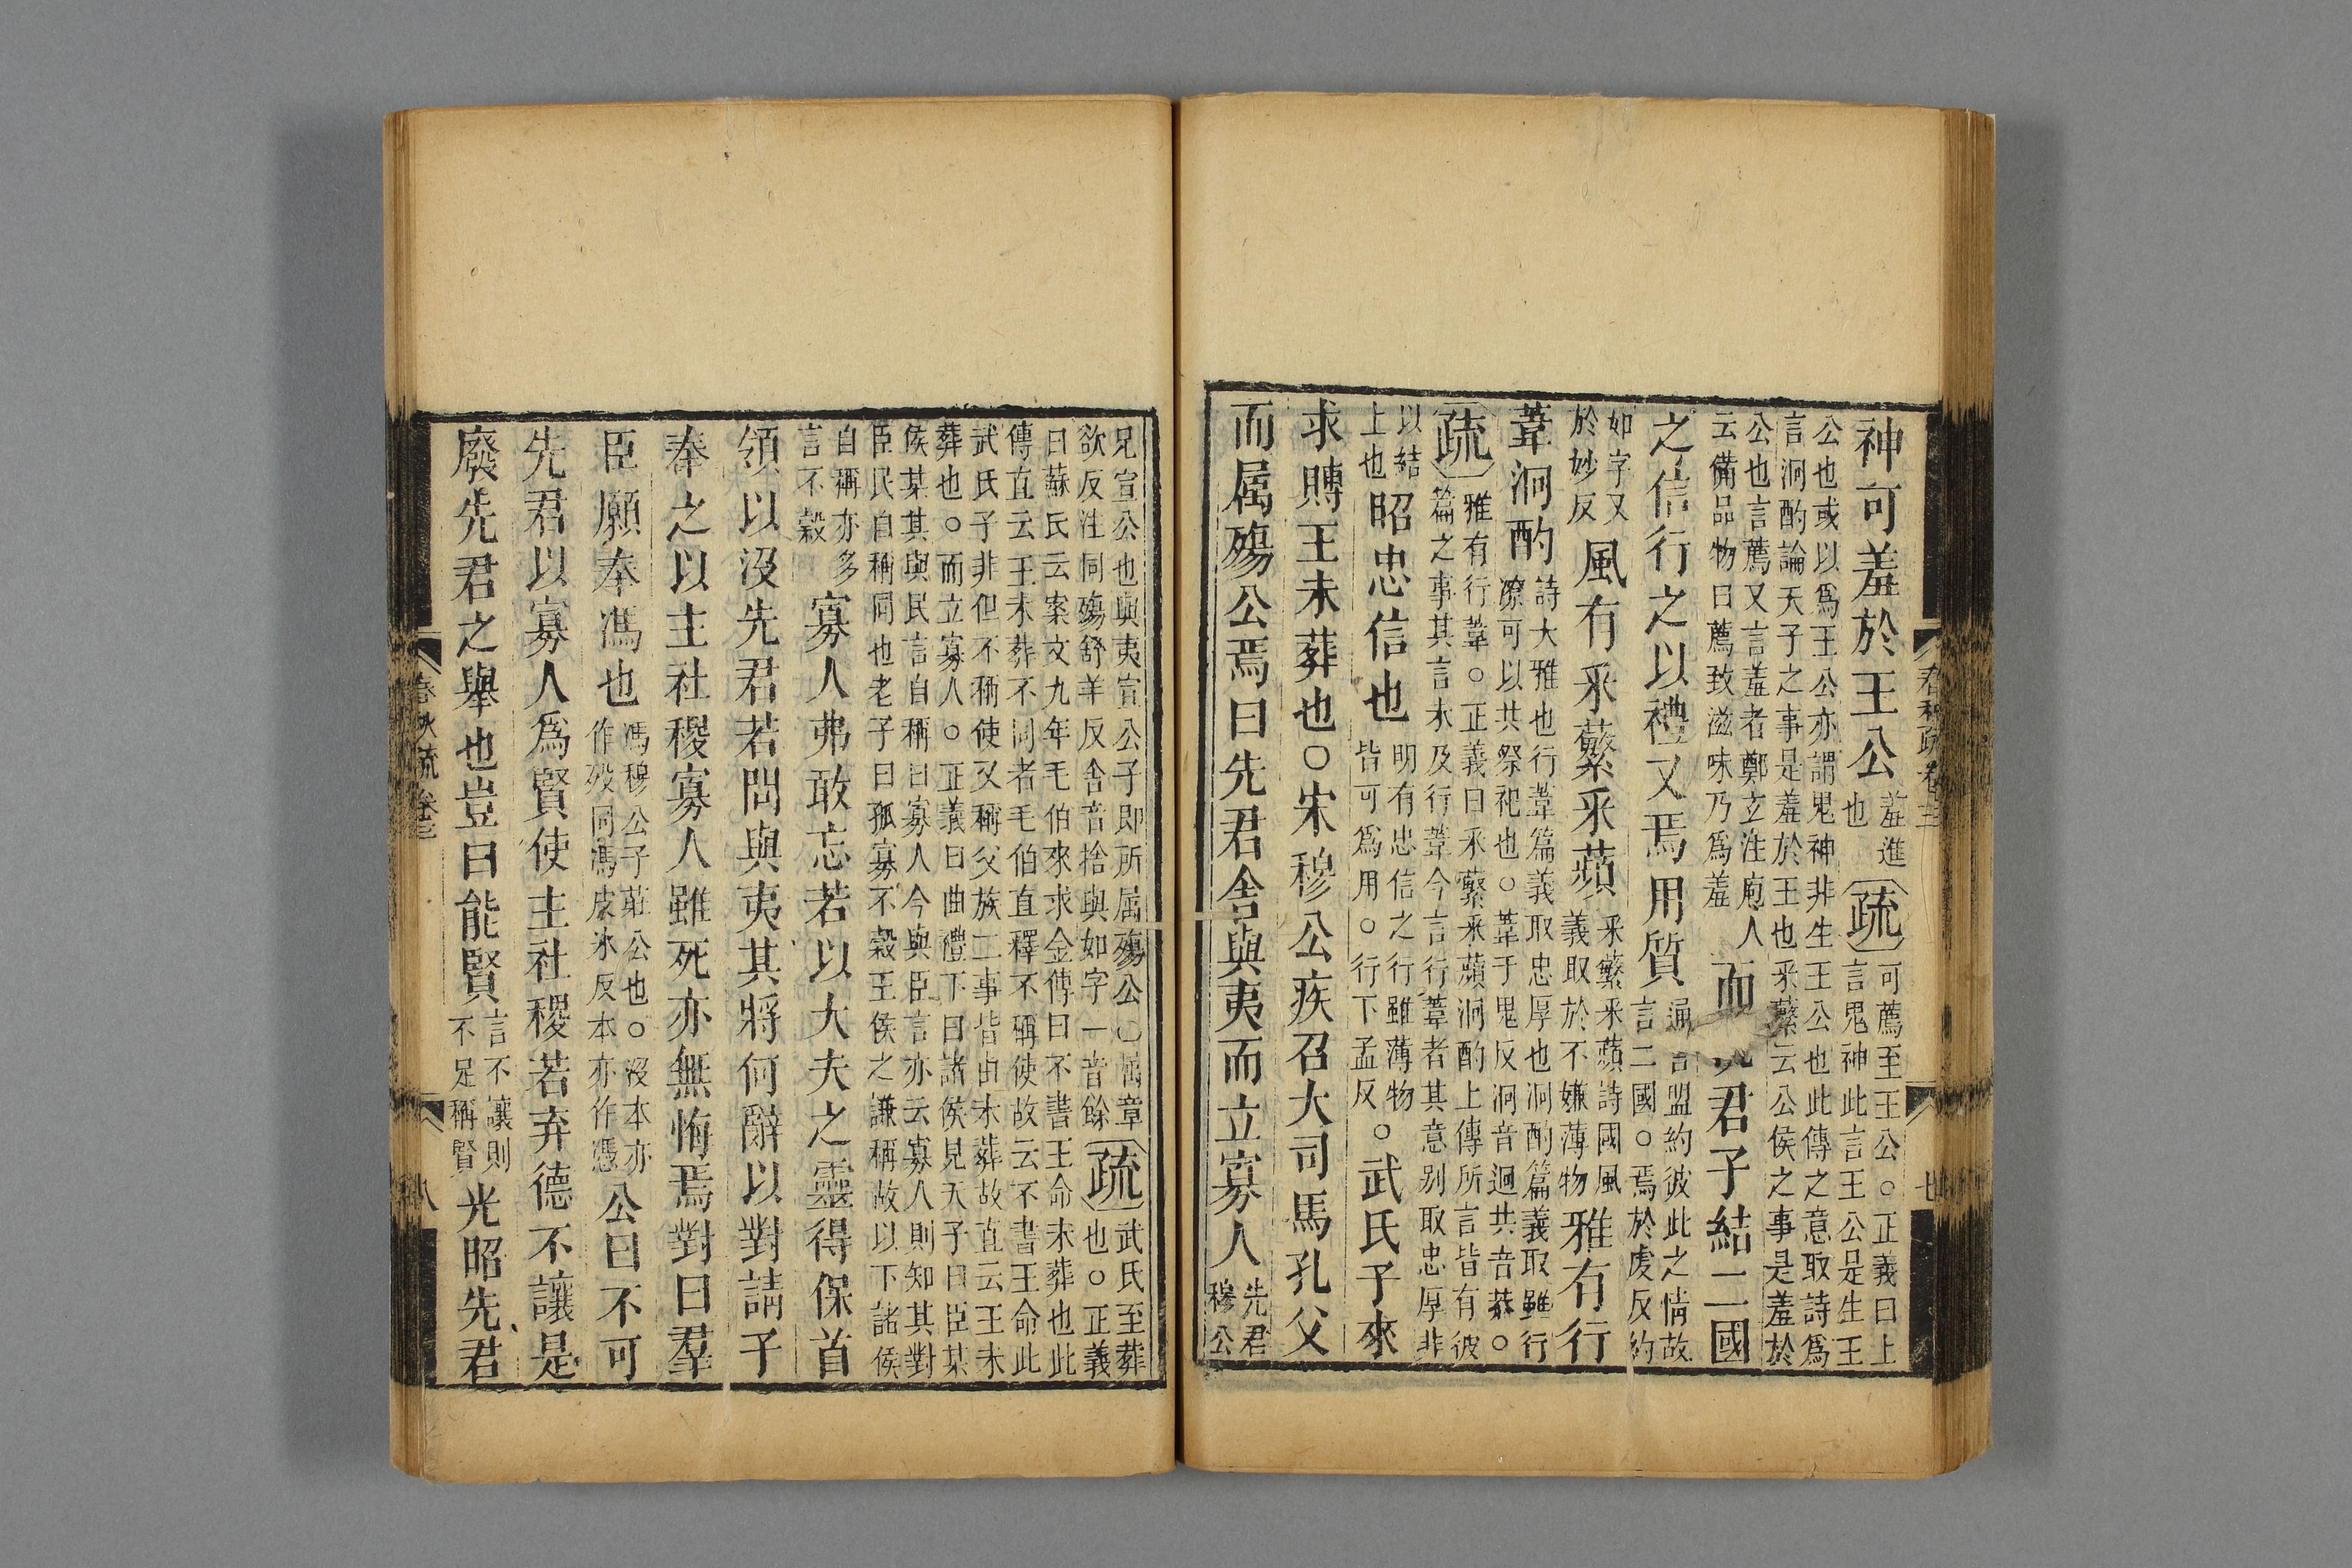 神可羞於王公羞進也疏可薦至王公○正義曰上言鬼神此言王公是生王
公也或以爲王公亦謂鬼神非生王公也此傳之意取詩爲
言泂酌論天子之事是羞於王也采蘩云公侯之事是羞於
公也言薦又言羞者鄭玄注庖人云備品物曰薦致滋味乃爲羞而君子結二國
之信行之以禮又焉用質通言盟約彼此之情故言二國○焉於虔反約
如字又於妙反風有采蘩采蘋采蘩采蘋詩國風義取於不嫌薄物雅有行
葦泂酌詩大雅也行葦篇義取忠厚也泂酌篇義取雖行潦可以共祭祀也○葦于鬼反泂音迥共音恭○
疏雅有行葦○正義曰采蘩采蘋泂酌上傳所言皆有彼篇之事其言未及行葦今言行葦者其意别取忠厚非
以結上也昭忠信也明有忠信之行雖薄物皆可爲用○行下孟反○武氏子來
求賻王未葬也○宋穆公疾召大司馬孔父
而属殤公焉曰先君舍與夷而立寡人先君穆公
春秋疏卷三
七
兄宣公也與夷宣公子即所屬殤公○屬章欲反注同殤舒羊反舍音捨與如字一音餘疏武氏至葬也○正義
曰蘇氏云案文九年毛伯來求金傳曰不書王命未葬也此
傳直云王未葬不同者毛伯直釋不稱使故云不書王命此
武氏子非但不稱使又稱父族二事皆由未葬故直云王未
葬也○而立寡人○正義曰曲禮下曰諸侯見天子曰臣某
侯某其與民言自稱曰寡人今與臣言亦云寡人則知其對
臣民自稱同也老子曰孤寡不穀王侯之謙稱故以下諸侯
自稱亦多言不穀寡人弗敢忘若以大夫之靈得保首
領以沒先君若問與夷其將何辭以對請子
奉之以主社稷寡人雖死亦無悔焉對曰羣
臣願奉馮也馮穆公子莊公也○沒本亦作歿同馮皮冰反本亦作憑公曰不可
先君以寡人爲賢使主社稷若弃德不讓是
廢先君之舉也豈曰能賢言不讓則不足稱賢光昭先君
春秋疏卷三
八